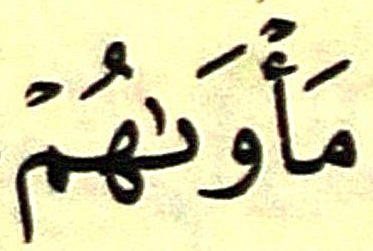 مَأْوَىٰهُمْ